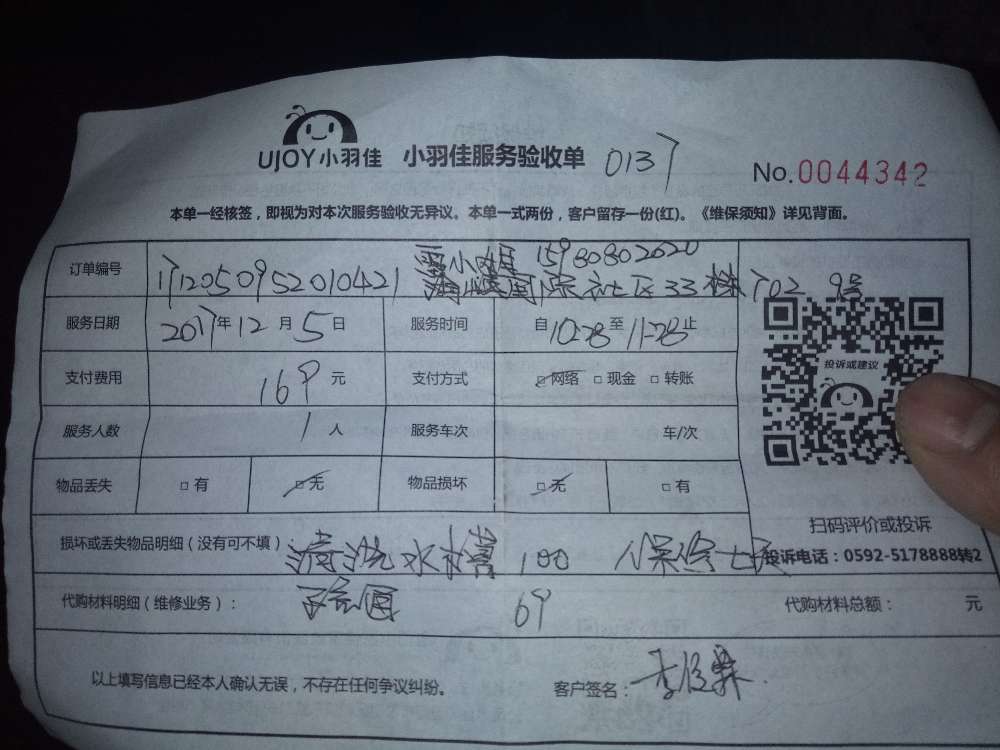 UJOY小羽佳 小羽佳服务验收单 0137 No.0044342
本单一经核签，即视为对本次服务验收无异议。本单一式两份，客户留存一份(红)。《维保须知》详见背面。
小姐 15980802020
订单编号 17120509520010421 社区33栋702 9号
服务日期 2017年12月5日 服务时间 自10:28至11:28止
支付费用 169元 支付方式 ☑网络 □现金 □转账
投诉或建议
服务人数 1人 服务车次 车/次
物品丢失 □有 ☑无 物品损坏 ☑无 □有
扫码评价或投诉
损坏或丢失物品明细（没有可不填）： 清洗水槽 100 保修七天
投诉电话：0592-5178888转2
代购材料明细（维修业务）： 69 代购材料总额： 元
以上填写信息已经本人确认无误，不存在任何争议纠纷。 客户签名：